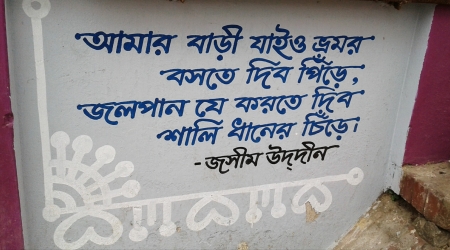 আমার বাড়ী যাইও ভ্রমর
বসতে দিব পিঁড়ে,
জলপান যে করতে দিব
শালি ধানের চিঁড়ে।
-জসীম উদ্‌দীন